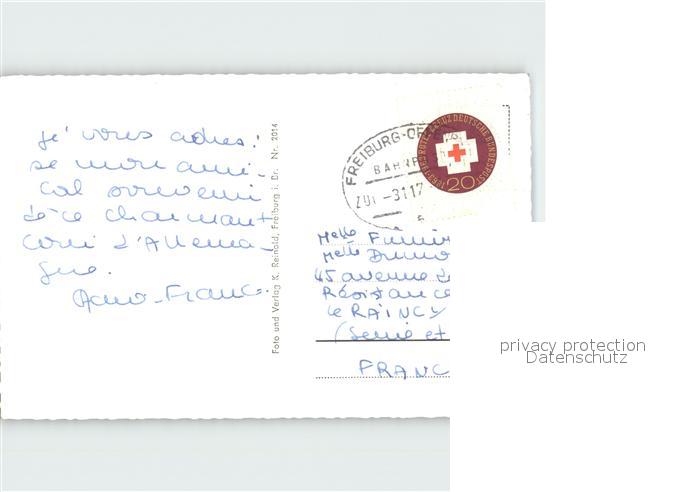 je vous adres-
se mon ami-
cal souvenir
de ce charmant
coin d'Allema-
gne.
Foto und Verlag K. Reinold, Freiburg i. Br. Nr. 2014
FREIBURG-OF
BAHNP
ZUI -3117
6
ROTES KREUZ DEUTSCHE BUNDESPOST
20
Melle
Melle
45 avenue de
Résistance
Le RAINCY
(Seine et
FRANC
privacy protection
Datenschutz